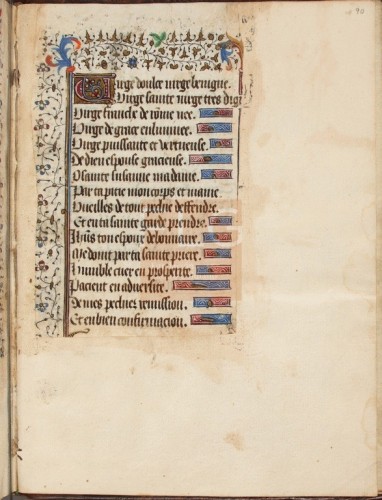 90
Virge doulce virge benigne.
Virge sainte virge tres dign
Virge franche de rôme nee.
Virge de grace enluminee.
Virge puissante et vertueuse.
De dieu espouse gracieuse.
O sainte susanne ma dame.
Par ta pitie mon corps et mame
Vueilles de tout pechie deffendre.
Et en ta sainte garde prendre.
Ihũs ton espoux debonnaire.
Me doint par ta sainte priere.
Humble cuer en prosperite.
Pacient en adversite.
De mes pechiez remission.
Et en bien confirmacion.